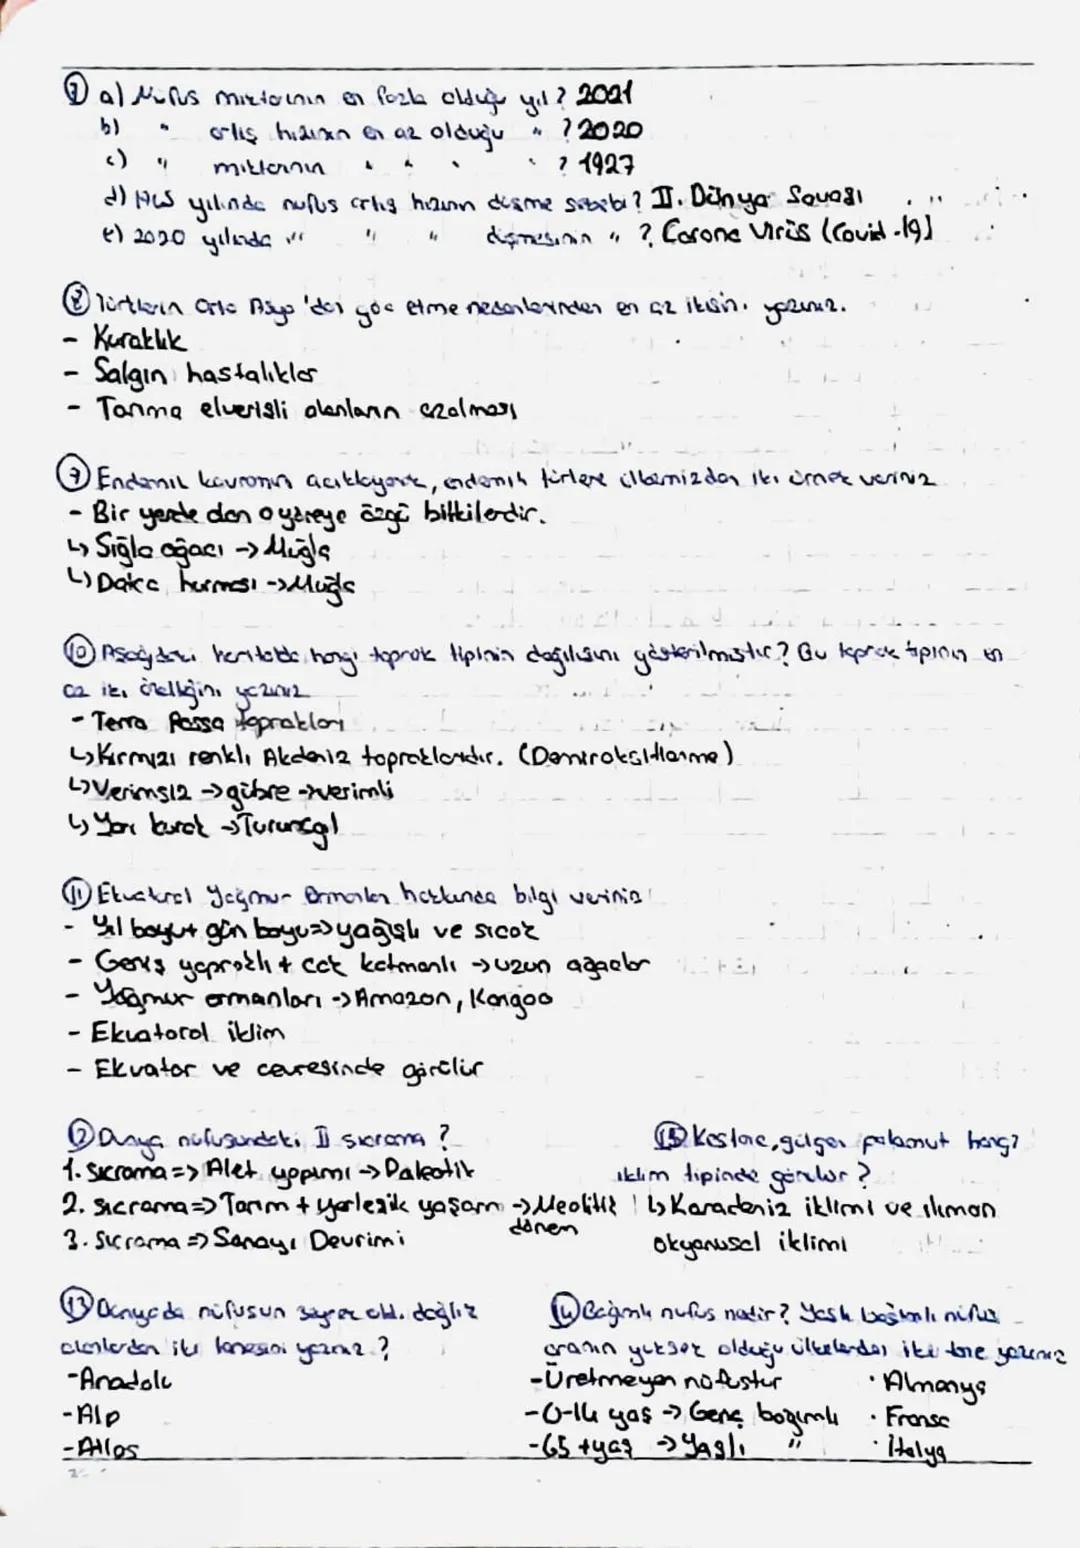 a) Nüfus miktarının en fazla olduğu yıl? 2021
b) " artış hızının en az olduğu " ? 2020
c) " miktarının " " " " ? 1927
d) yılında nüfus artış hızının düşme sebebi? II. Dünya Savaşı
e) 2020 yılında " " " düşmesinin " ? Corona Virüs (Covid-19)
⑧ Türklerin Orta Asya'dan göç etme nedenlerinden en az ikisini yazınız.
- Kuraklık
- Salgın hastalıklar
- Tarıma elverişli alanların azalması
Endemik kavramını açıklayarak, endemik türlere ülkemizden iki örnek veriniz
- Bir yerde olan o yöreye özgü bitkilerdir.
↳ Sığla ağacı -> Muğla
↳ Datça hurması -> Muğla
⑩ Aşağıdaki haritada hangi toprak tipinin dağılışını gösterilmiştir? Bu toprak tipinin en
az iki özelliğini yazınız
- Terra Rossa toprakları
↳ Kırmızı renkli Akdeniz topraklarıdır. (Demiroksitlenme)
↳ Verimsiz -> gübre -> verimli
↳ Yarı kurak -> Turunçgil
⑪ Ekvatoral Yağmur Ormanları hakkında bilgi veriniz
- Yıl boyu + gün boyu => yağışlı ve sıcak
- Geniş yapraklı + çok katmanlı -> uzun ağaçlar
- Yağmur ormanları -> Amazon, Kongo
- Ekvatoral iklim
- Ekvator ve çevresinde görülür
⑫ Dünya nüfusundaki II sıçrama ?
1. Sıçrama => Alet yapımı -> Paleotik
2. sıcrama => Tarım + yerleşik yaşam -> Neolitik
dönem
3. Sıcrama => Sanayi Devrimi
⑮ Kestane, gürgen palamut hangi
iklim tipinde görülür ?
↳ Karadeniz iklimi ve ılıman
okyanusal iklimi
⑬ Dünyada nüfusun seyrek old. dağlık
alanlardan iki tanesini yazınız ?
- Anadolu
- Alp
- Atlas
⑭ Bağımlı nüfus nedir? Yaşlı bağımlı nüfus
oranın yüksek olduğu ülkelerden iki tane yazınız
- Üretmeyen nüfustur
- 0-14 yaş -> Genç bağımlı
- 65 + yaş -> Yaşlı "
· Almanya
· Fransa
· İtalya